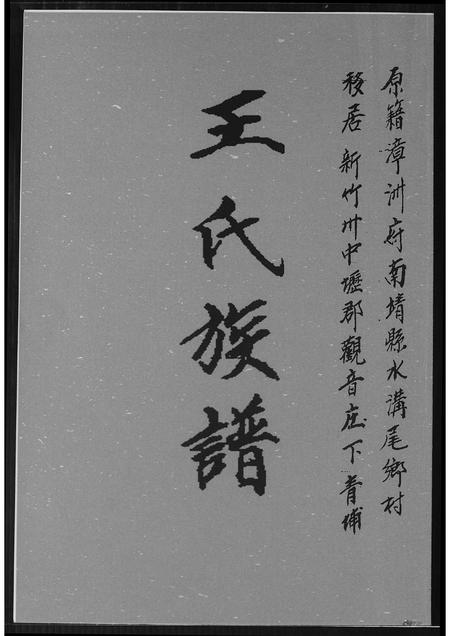 原籍漳洲府南靖縣水溝尾鄉村
移居 新竹州中壢郡觀音庄下青埔
王氏族譜